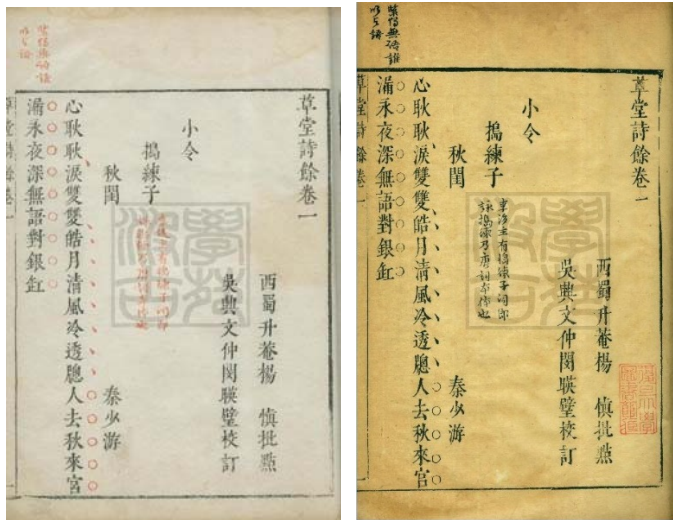 草堂詩餘卷一
西蜀升菴楊　慎批點
吳興文仲閔暎璧校訂
小令
搗練子
秋閨
秦少游
心耿耿淚雙雙皓月清風冷透牕人去秋來宮
漏永夜深無語對銀缸
草堂詩餘卷一
西蜀升菴楊　慎批點
吳興文仲閔暎璧校訂
小令
搗練子
李後主有搗練子詞即
詠搗練乃唐詞本體也
秋閨
秦少游
心耿耿淚雙雙皓月清風冷透牕人去秋來宮
漏永夜深無語對銀缸